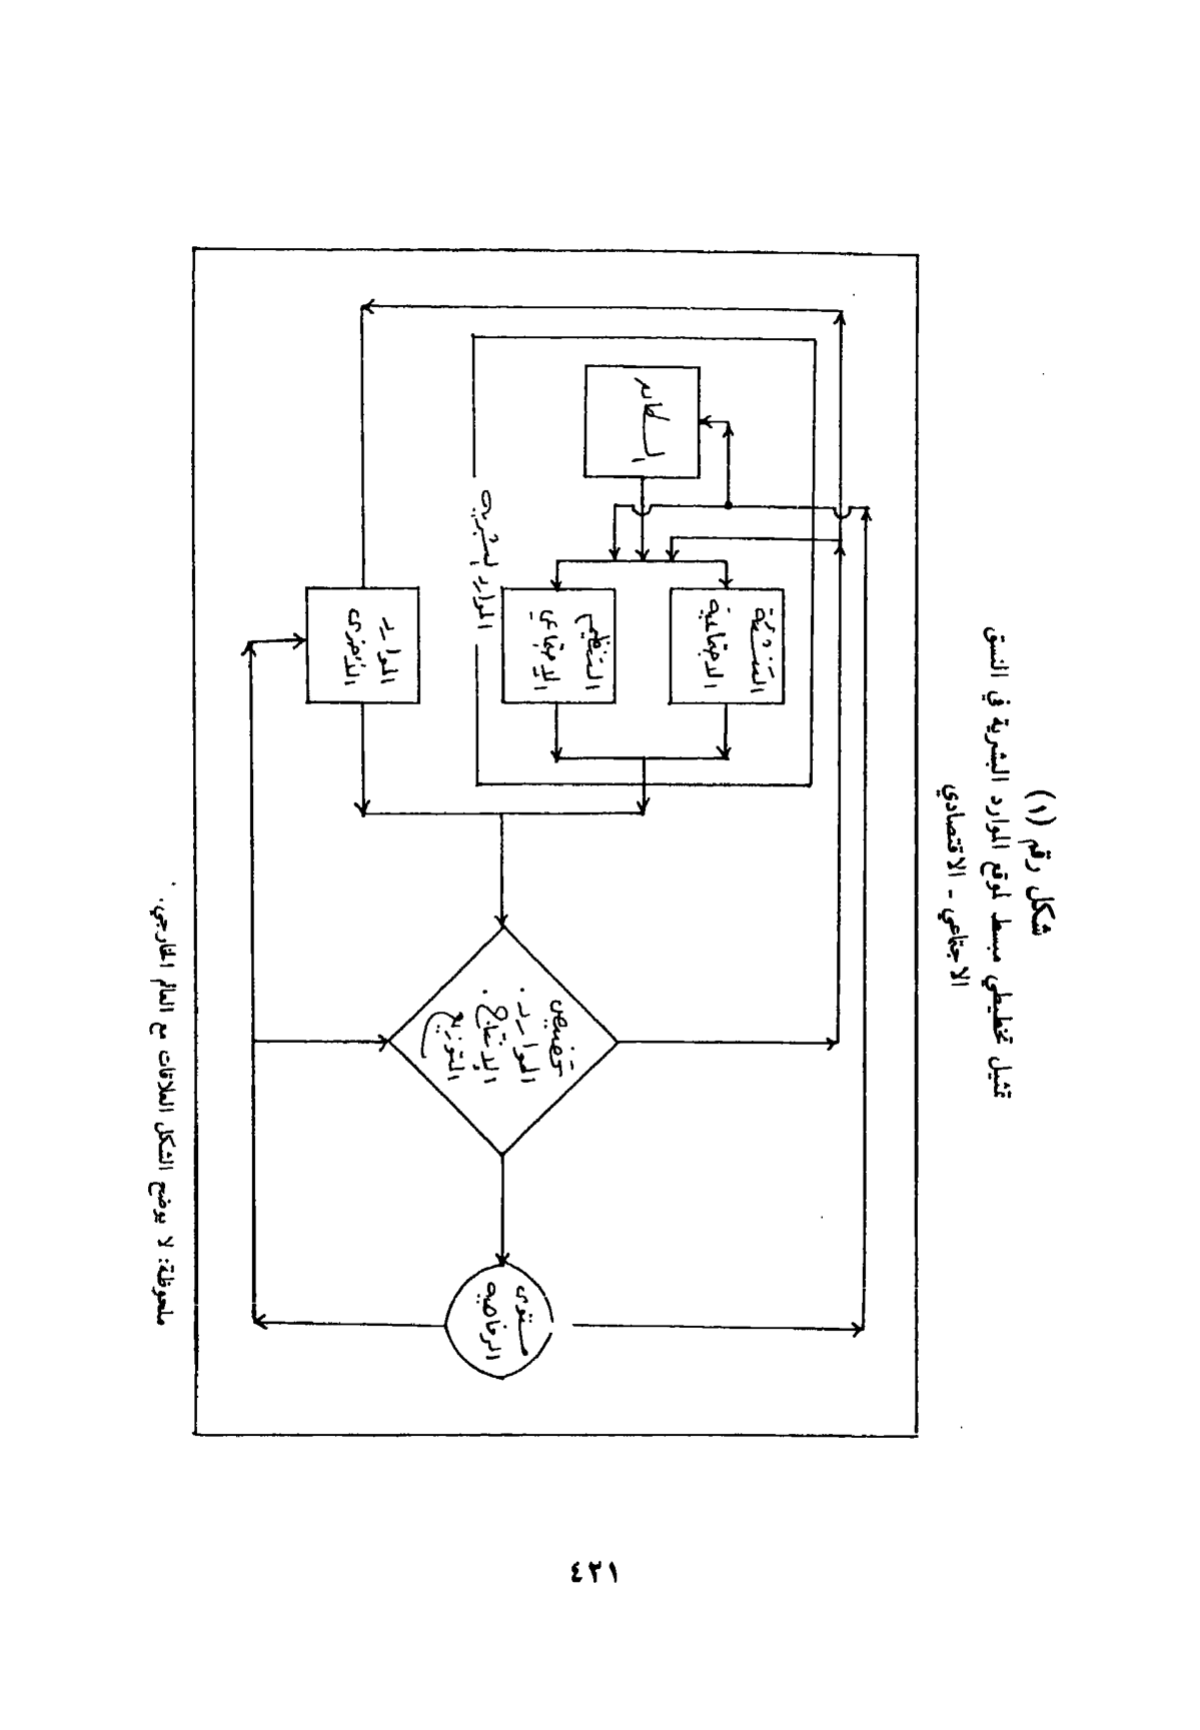 شكل رقم (١)
تمثيل تخطيطي مبسط لموقع الموارد البشرية في النسق
الاجتماعي - الاقتصادي
السكان
التنشئة
الاجتماعية
التنظيم
الاجتماعي
الموارد البشرية
الموارد
الأخرى
تخصيص
الموارد.
الإنتاج.
التوزيع
مستوى
الرفاهيه
ملحوظة: لا يوضح الشكل العلاقات مع العالم الخارجي.
٤٢١